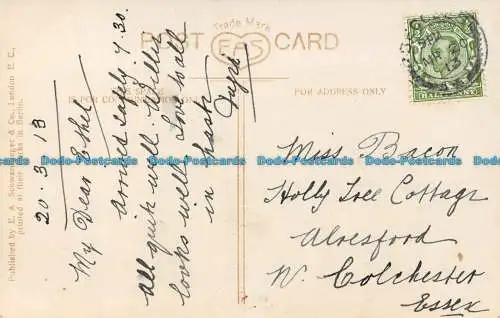 Trade Mark
POST CARD
E.F.S.
THIS SPACE
FOR ADDRESS ONLY
Published by E. A. Schwerdtfeger & Co., London E.C.,
printed at their works in Berlin.
20-3-13
My Dear Ethel
arrived safely 7.30.
all quite well
looks well. Love to all
in haste
HALFPENNY
Miss Bacon
Holly Tree Cottage
Alresford
Nr. Colchester
Essex
Dado-Postcards